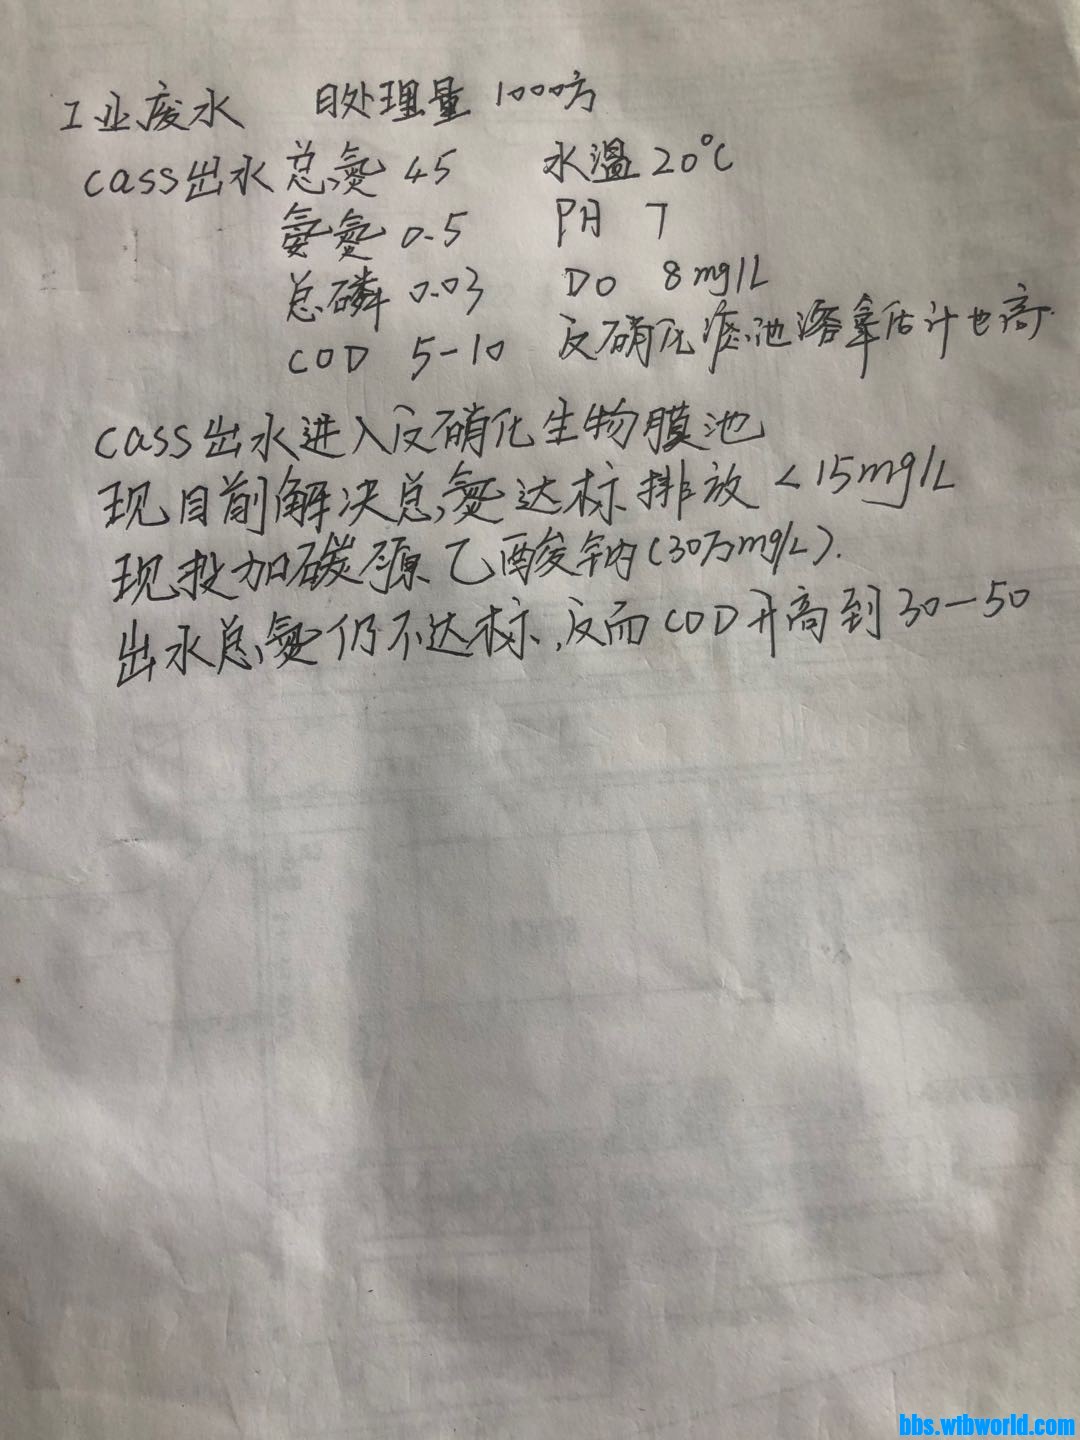 工业废水 日处理量 1000方
cass出水 总氮 45 水温 20℃
氨氮 0.5 PH 7
总磷 0.03 DO 8mg/L
COD 5-10 反硝化滤池溶氧估计也高.
cass出水进入反硝化生物膜池
现目前解决总氮达标排放 <15mg/L
现投加碳源乙酸钠(30万mg/L).
出水总氮仍不达标,反而COD升高到30-50
bbs.wibworld.com